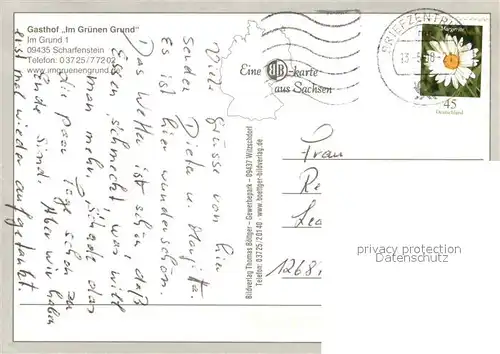 Gasthof „Im Grünen Grund“
Im Grund 1
09435 Scharfenstein
Telefon: 03725/77202
www.imgruenengrund.de
Eine BB-karte
aus Sachsen
BRIEFZENTRUM
45
Deutschland
Viele Grüsse von hier
senden Dieter u. Margitta.
Es ist hier wunderschön.
Das Wetter ist schön, daß
Essen schmeckt, was will
man mehr, schade das
die paar Tage schon zu
Ende sind. Aber wir haben
erst mal wieder aufgetankt.
Bildverlag Thomas Böttger - Gewerbepark - 09437 Witzschdorf
Telefon: 03725/20140 - www.boettger-bildverlag.de
Frau
Re
Lea
1268
privacy protection
AnsichtskartenCenter